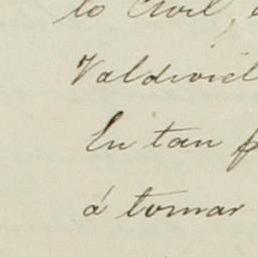 to Civil,
Valdiviel
En tan
á tomar